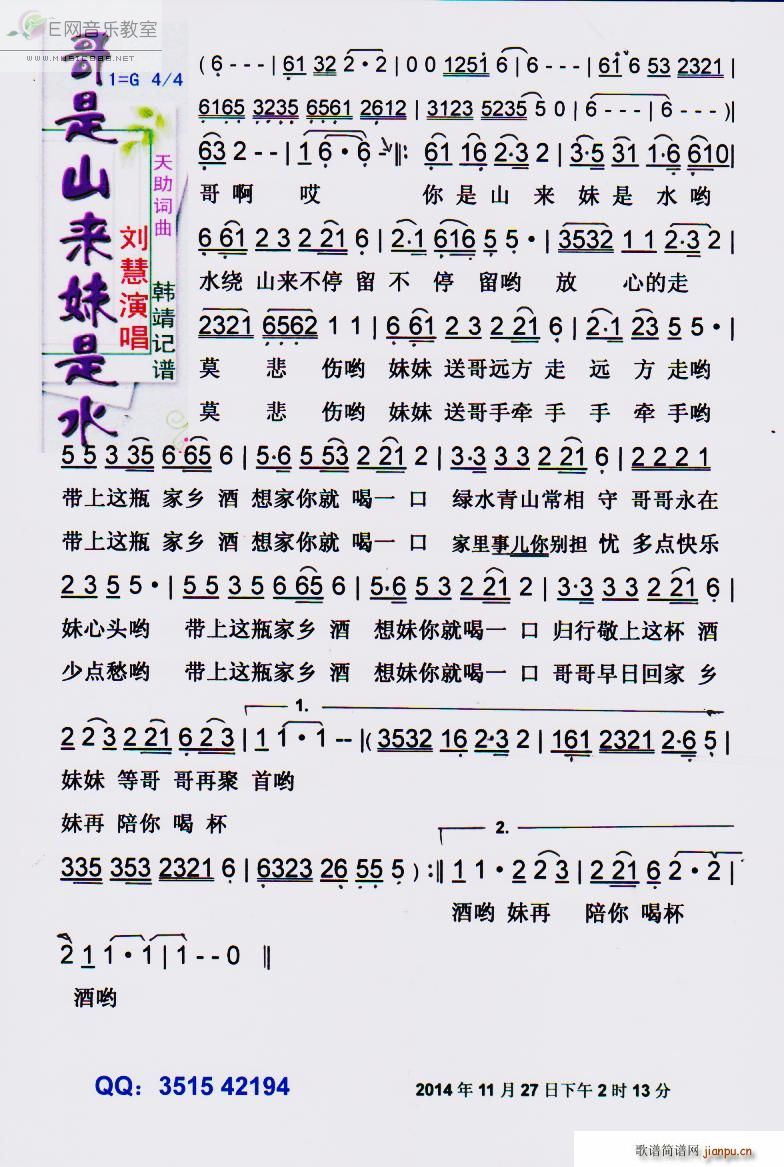 E网音乐教室
WWW.MUSICEDS.NET
哥是山来妹是水
1=G 4/4
天助词曲
刘慧演唱
韩靖记谱
(6 - - - | 61 32 2·2 | 0 0 1251 6 | 6 - - - | 61 6 53 2321 |
6165 3235 6561 2612 | 3123 5235 5 0 | 6 - - - | 6 - - -)|
63 2 - - | 1 6·6 - ‖: 61 16 2·3 2 | 3·5 31 1·6 610|
哥啊 哎 你是山来妹是水哟
6 61 2 3 2 21 6 | 2·1 616 5 5· | 3532 1 1 2·3 2 |
水绕 山来不停 留 不 停 留哟 放 心的走
2321 6562 1 1 | 6 61 2 3 2 21 6 | 2·1 23 5 5· |
莫 悲 伤哟 妹妹 送哥远方 走 远 方 走哟
莫 悲 伤哟 妹妹 送哥手牵 手 手 牵 手哟
5 5 3 35 6 65 6 | 5·6 5 53 2 21 2 | 3·3 3 3 2 21 6 | 2 2 2 1
带上这瓶 家乡 酒 想家你就 喝一 口 绿水青山常相 守 哥哥永在
带上这瓶 家乡 酒 想家你就 喝一 口 家里事儿你别担 忧 多点快乐
2 3 5 5· | 5 5 3 5 6 65 6 | 5·6 5 3 2 21 2 | 3·3 3 3 2 21 6 |
妹心头哟 带上这瓶家乡 酒 想妹你就喝一 口 归行敬上这杯 酒
少点愁哟 带上这瓶家乡 酒 想妹你就喝一 口 哥哥早日回家 乡
1.
2 2 3 2 21 6 2 3 | 1 1·1 - - |( 3532 16 2·3 2 | 161 2321 2·6 5 |
妹妹 等哥 哥再聚 首哟
妹再 陪你 喝 杯
2.
335 353 2321 6 | 6323 26 55 5 ) :‖ 1 1· 2 2 3 | 2 21 6 2·2 |
酒哟 妹再 陪你 喝杯
2 1 1·1 | 1 - - 0 ‖
酒哟
QQ：3515 42194
2014 年 11 月 27 日下午 2 时 13 分
歌谱简谱网
jianpu.cn